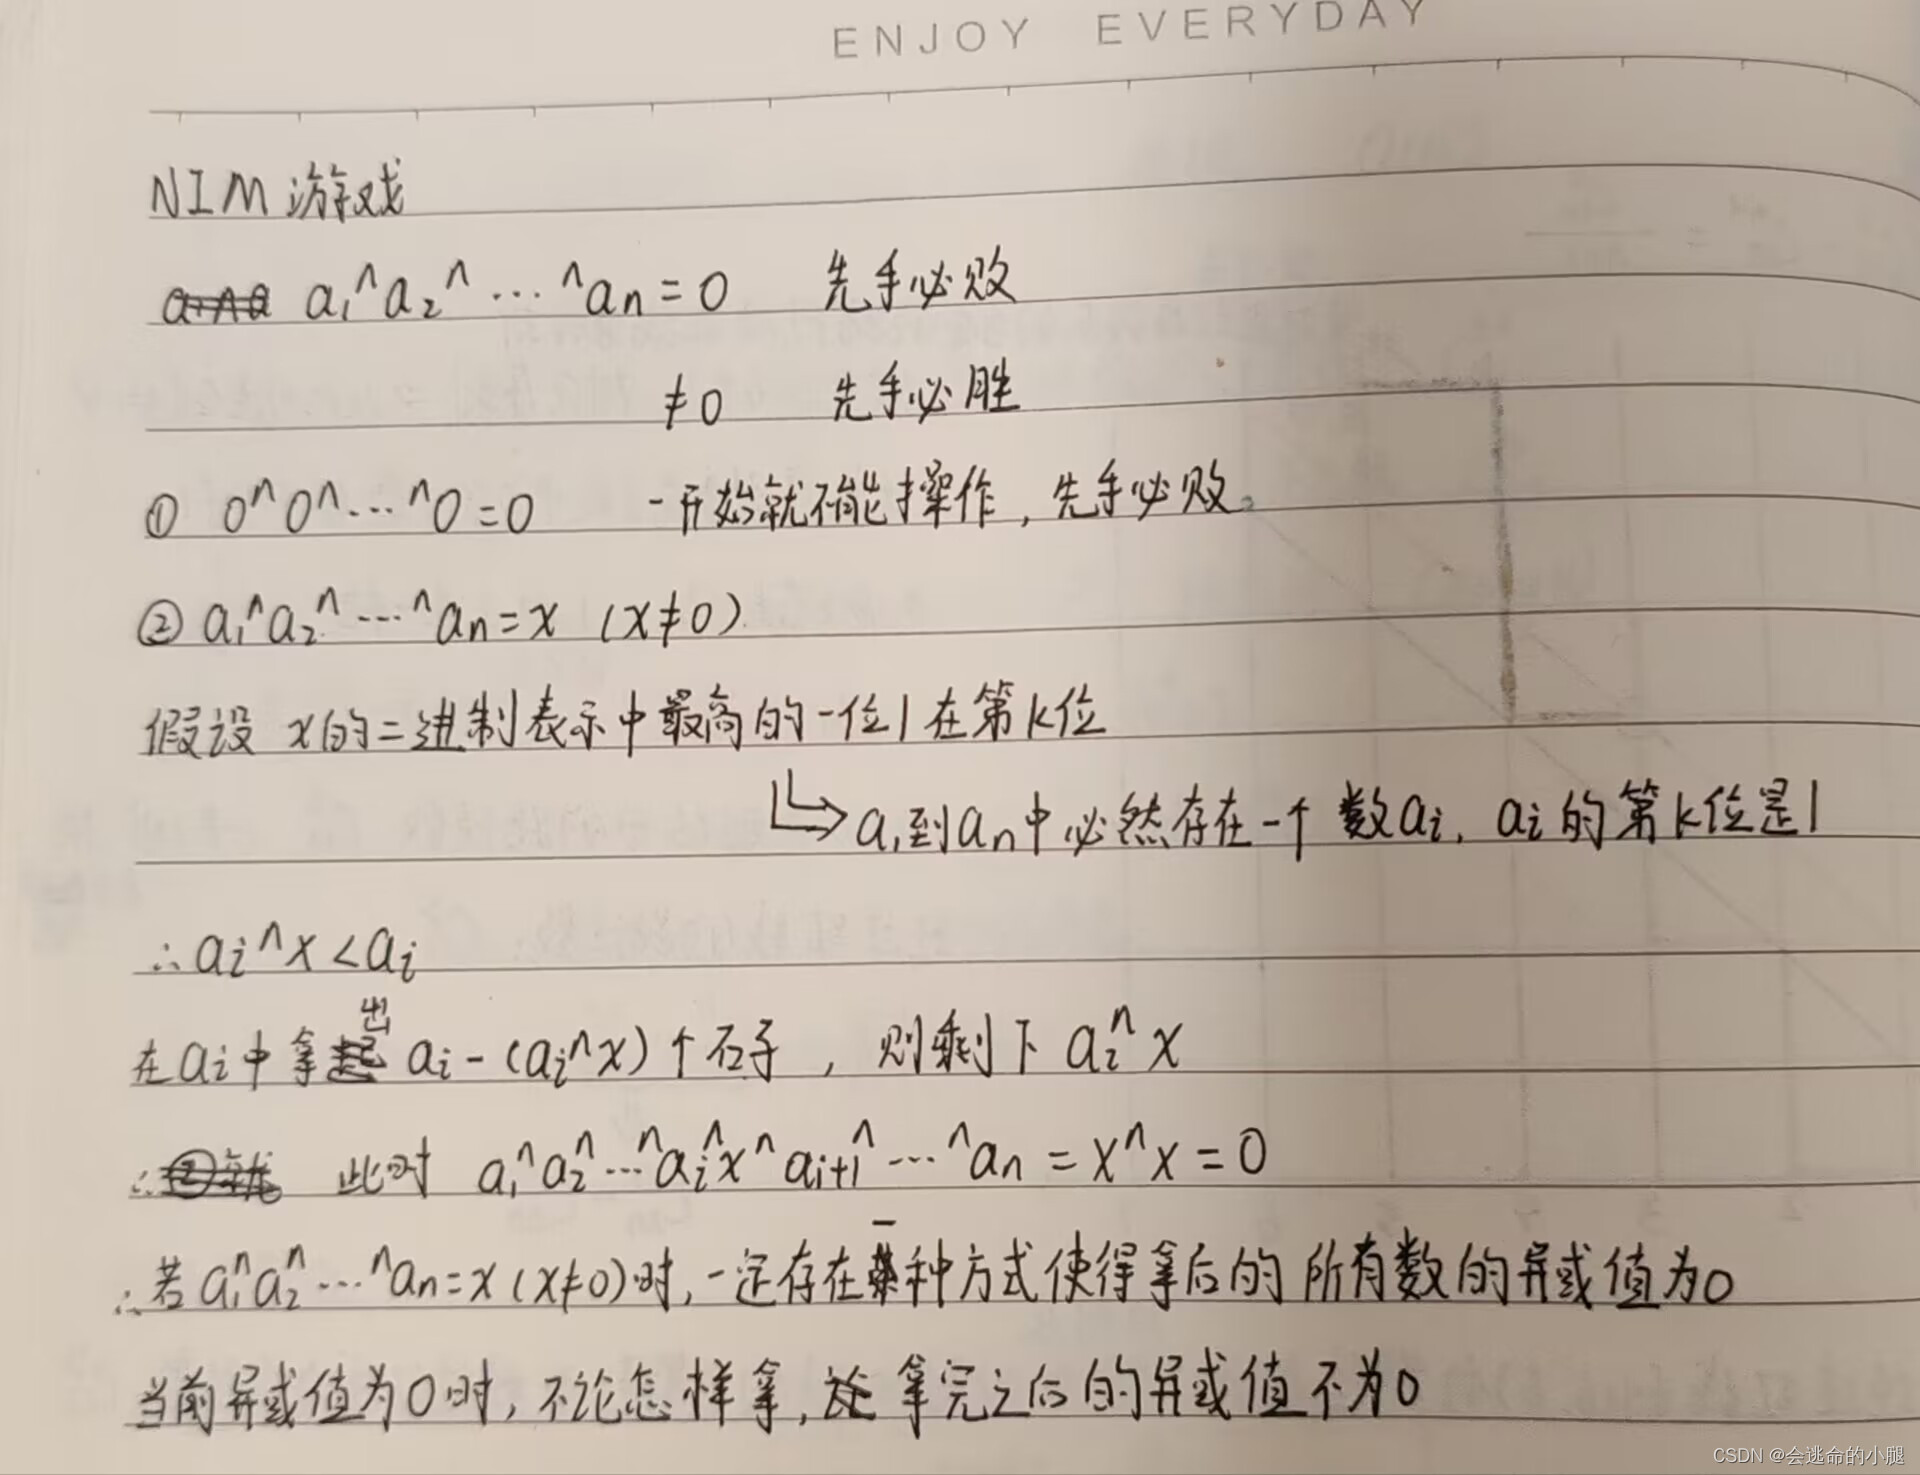 ENJOY EVERYDAY
NIM 游戏
a₁^a₂^…^an=0 先手必败
≠0 先手必胜
① 0^0^…^0=0 一开始就不能操作，先手必败。
② a₁^a₂^…^an=x (x≠0)
假设 x的二进制表示中最高的一位1在第k位
↳a₁到an中必然存在一个数ai, ai的第k位是1
∴ai^x<ai
在ai中拿出 ai-(ai^x)个石子，则剩下 ai^x
∴ 此时 a₁^a₂^…^ai^x^ai+1^…^an=x^x=0
∴若a₁^a₂^…^an=x(x≠0)时,一定存在一种方式使得拿后的所有数的异或值为0
当前异或值为0时,不论怎样拿,拿完之后的异或值不为0
CSDN @会逃命的小腿